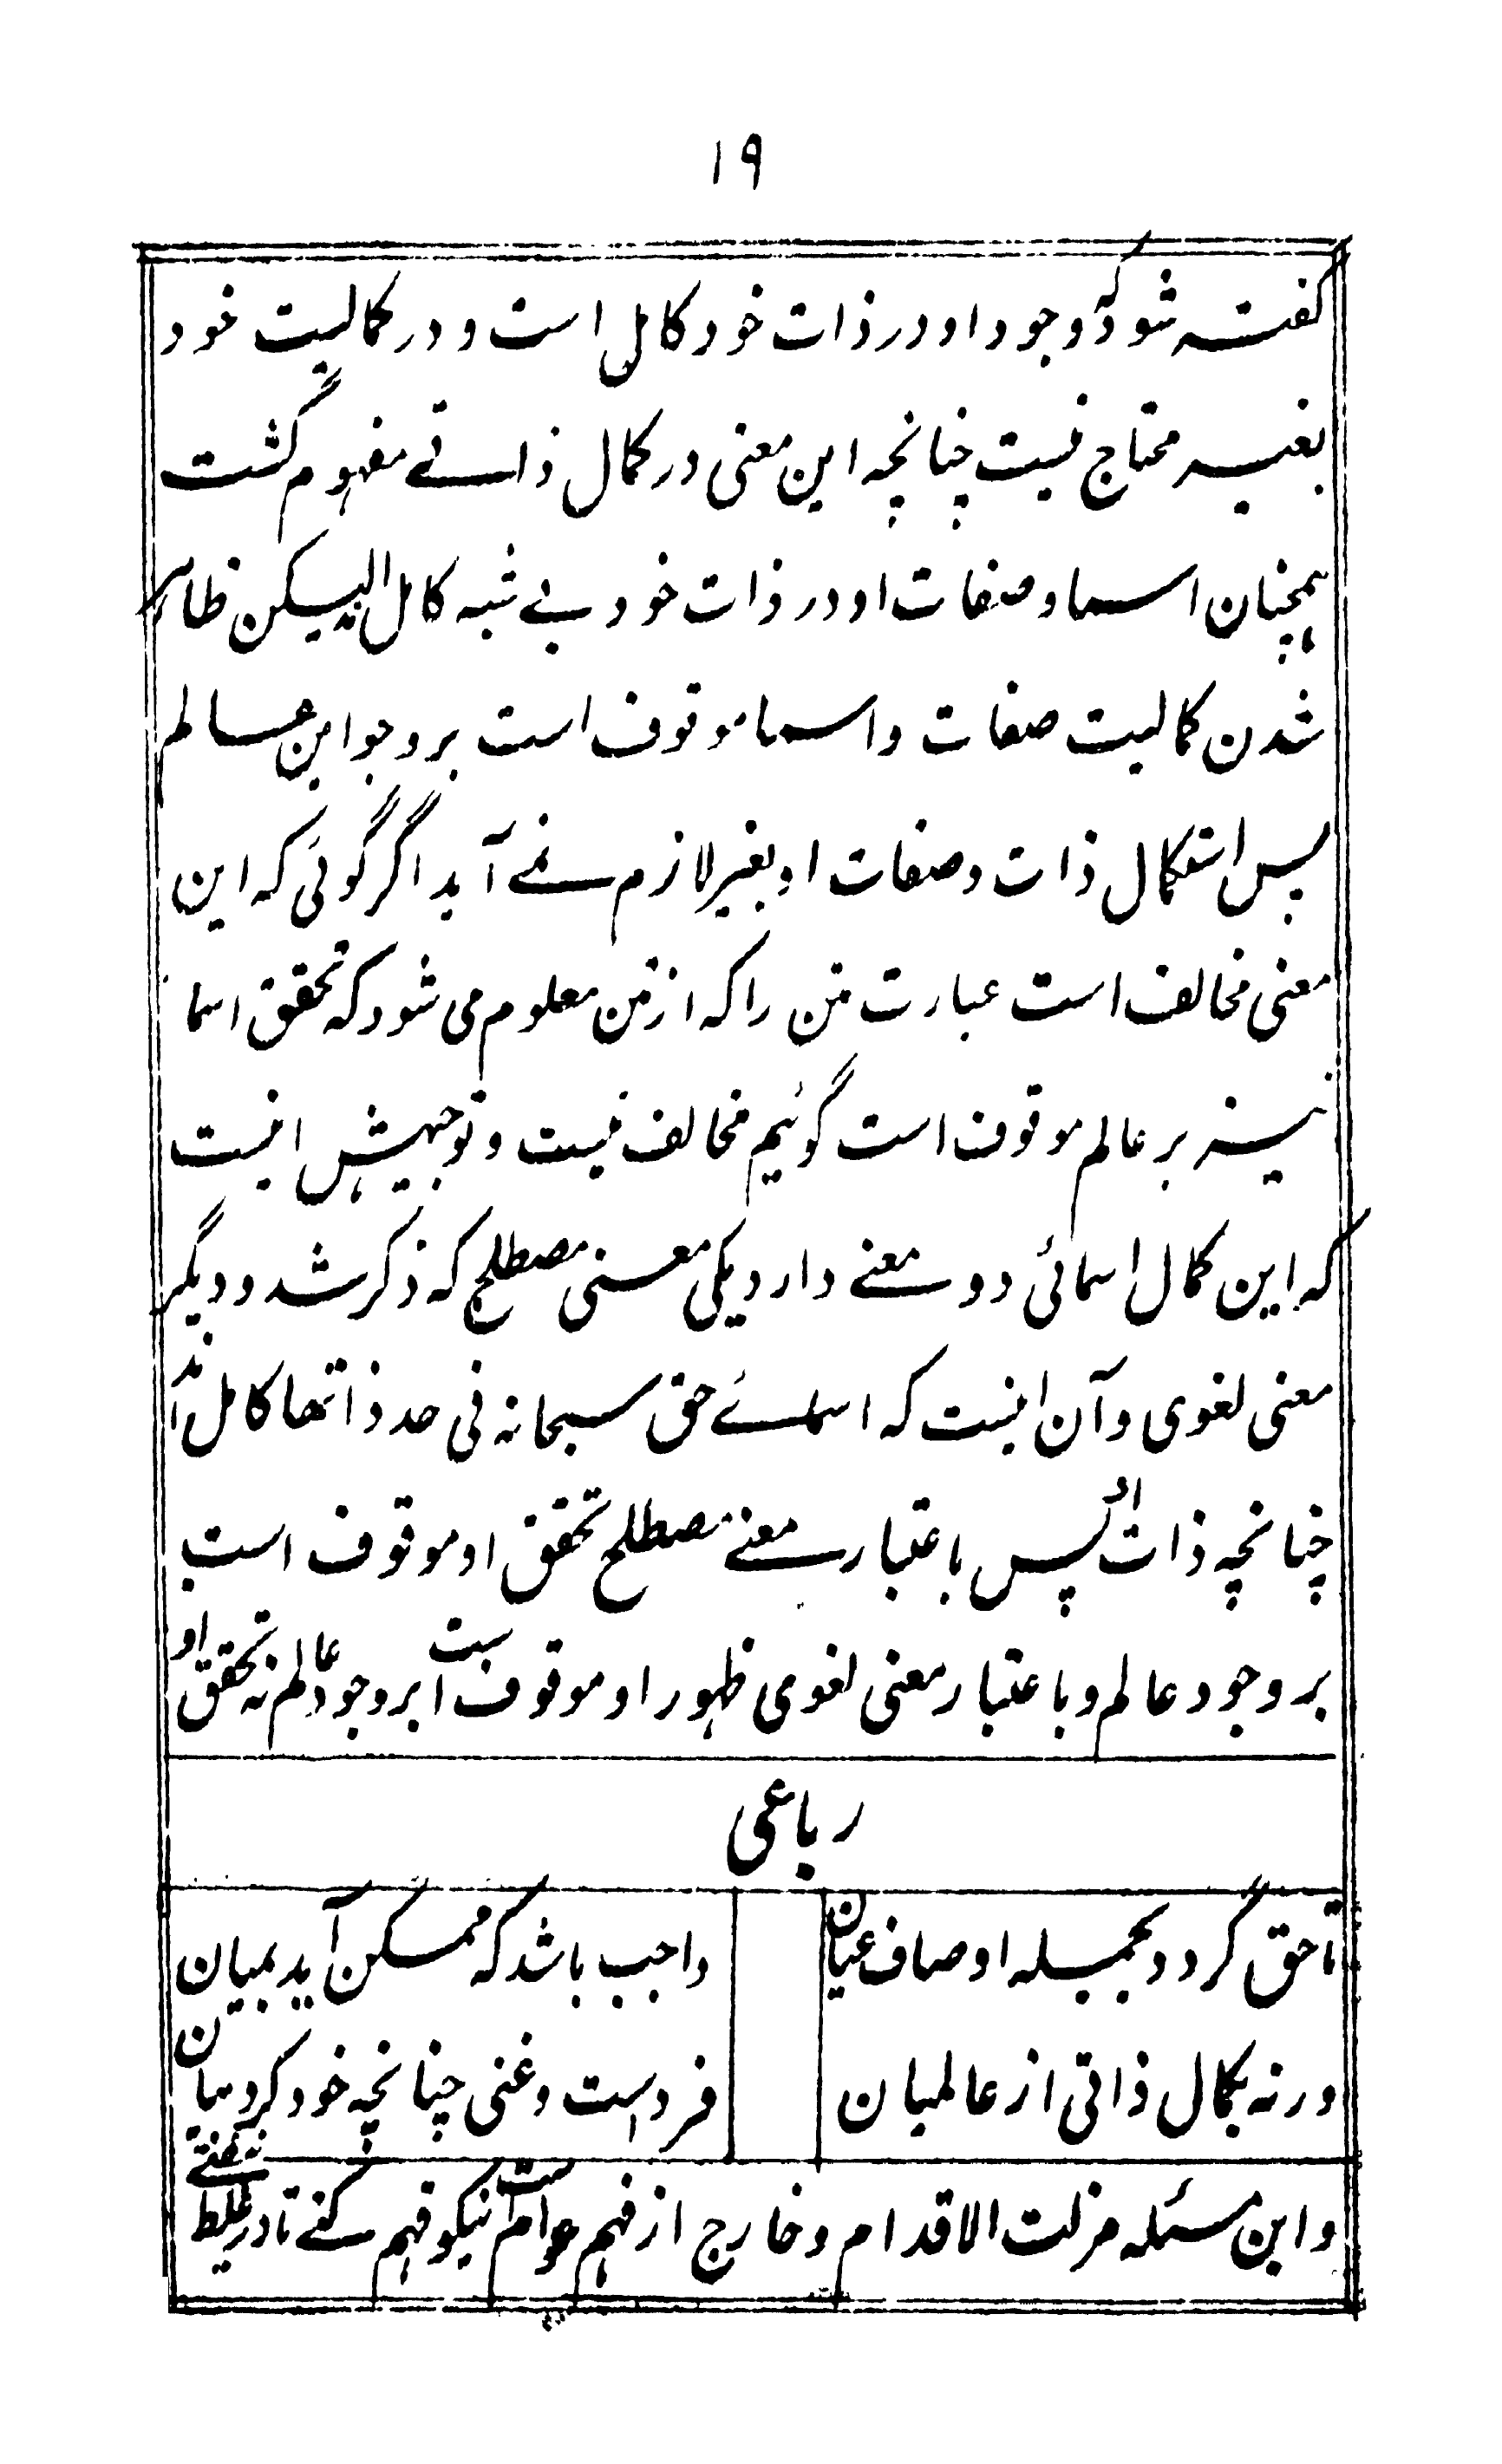 ۱۹
گفته شود که وجود او در ذات خود کامل است و در کمالیت خود
بغیر محتاج نیست چنانچه این معنی در کمال ذاتے مفهوم گشت
همچنان اسما و صفات او در ذات خود بے شبه کامل اند لیکن ظاهر
شدن کمالیت صفات و اسما موقوف است بر وجود این عالم
پس استکمال ذات و صفات او بغیر لازم نمے آید اگر گوئی که این
معنی مخالف است عبارت متن را که از متن معلوم می شود که تحقق اسما
نیز بر عالم موقوف است گوئیم مخالف نیست و توجیهش اینست
که این کمال اسمائی دو معنے دارد یکی معنی مصطلح که ذکر شد و دیگر
معنی لغوی و آن اینست که اسمائے حق سبحانه فی حد ذاتها کامل اند
چنانچه ذات او پس باعتبار معنے مصطلح تحقق او موقوف است
بر وجود عالم و باعتبار معنی لغوی ظهور او موقوف است بر وجود عالم نه تحقق او
رباعی
تا حق گردد بجمله اوصاف عیان واجب باشد که ممکن آید بمیان
ورنه بکمال ذاتی از عالمیان فردست و غنی چنانچه خود کرد بیان
و این مسئله مزلت الاقدام و خارج از فهم عوام است نیکو فهم کنے تا در غلط نیفتے